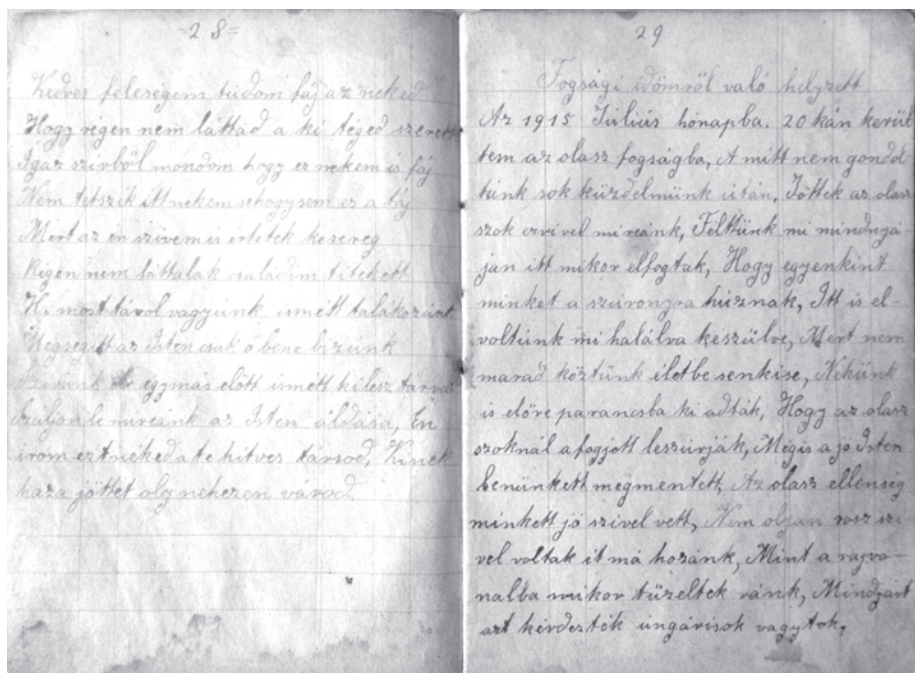 =28=
Kedves feleségem tudom fáj az neked
Hogy régen nem láttád a ki téged szerett
Igaz szivből mondom hogy ez nekem is fáj
Nem tetszik itt nekem sehogysem ez a táj
Mert az én szivem is értetek kesereg
Régen nem láttalak családim titekett
Ha most távol vagyunk ismétt találkozunk
Megsegitt az Isten csak ő bene bizunk
egymás előtt ismétt ki lesz tarva
száljon le mireánk az Isten áldása, En
irom ezt néked a te hitves társod, Kinek
haza jöttet oly nehezen várod
29
Fogsági időmről való helyzett
Az 1915 Július hónapba. 20 kán kerül
tem az olasz fogságba, A mitt nem gondol
tunk sok küzdelmünk után, Jöttek az olas
szok mireánk, Feltünk mi mindnyá-
jan itt mikor elfogtak, Hogy egyenkint
minket a szuronyra húznak, Itt is el-
voltunk mi halálra keszülve, Mert nem
marad köztünk életbe senkise, Nekünk
is előre parancsba ki adták, Hogy az olas
szoknál a fogjott leszurják, Mégis a jo Isten
benünkett megmentett, Az olasz ellenség
minkett jó szivel vett, Nem olyan rosz szi-
vel voltak it má hozánk, Mint a rajvo-
nalba mikor tüzeltek ránk, Mindjárt
azt kérdezték ungárisok vagytok,